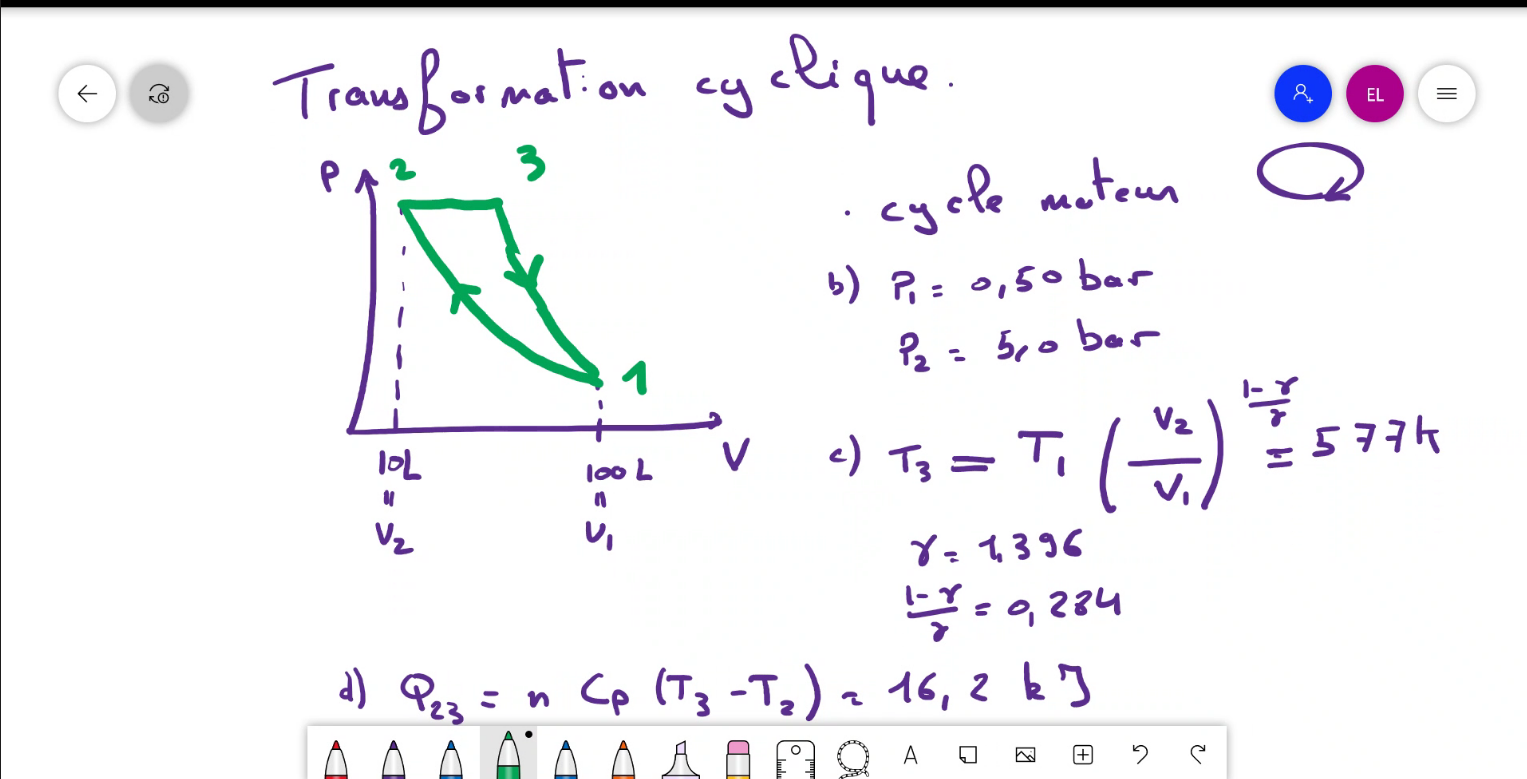 Transformation cyclique.
EL
P
2
3
1
V
10L
100 L
"
"
V2
V1
. cycle moteur
b) P1 = 0,50 bar
P2 = 5,0 bar
c) T3 = T1 (V2/V1)^(1-γ/γ) = 577k
γ = 1,396
1-γ/γ = 0,284
d) Q23 = n Cp (T3 - T2) = 16,2 kJ
A